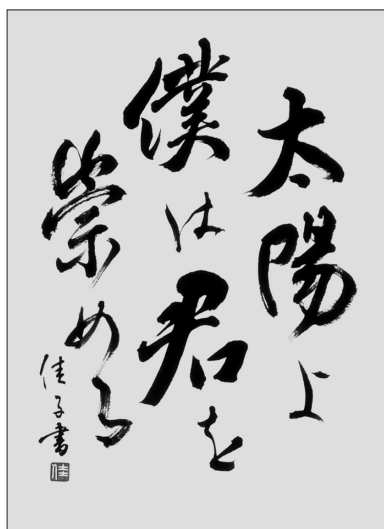 太陽よ
僕は君を
崇める
佳子書
佳